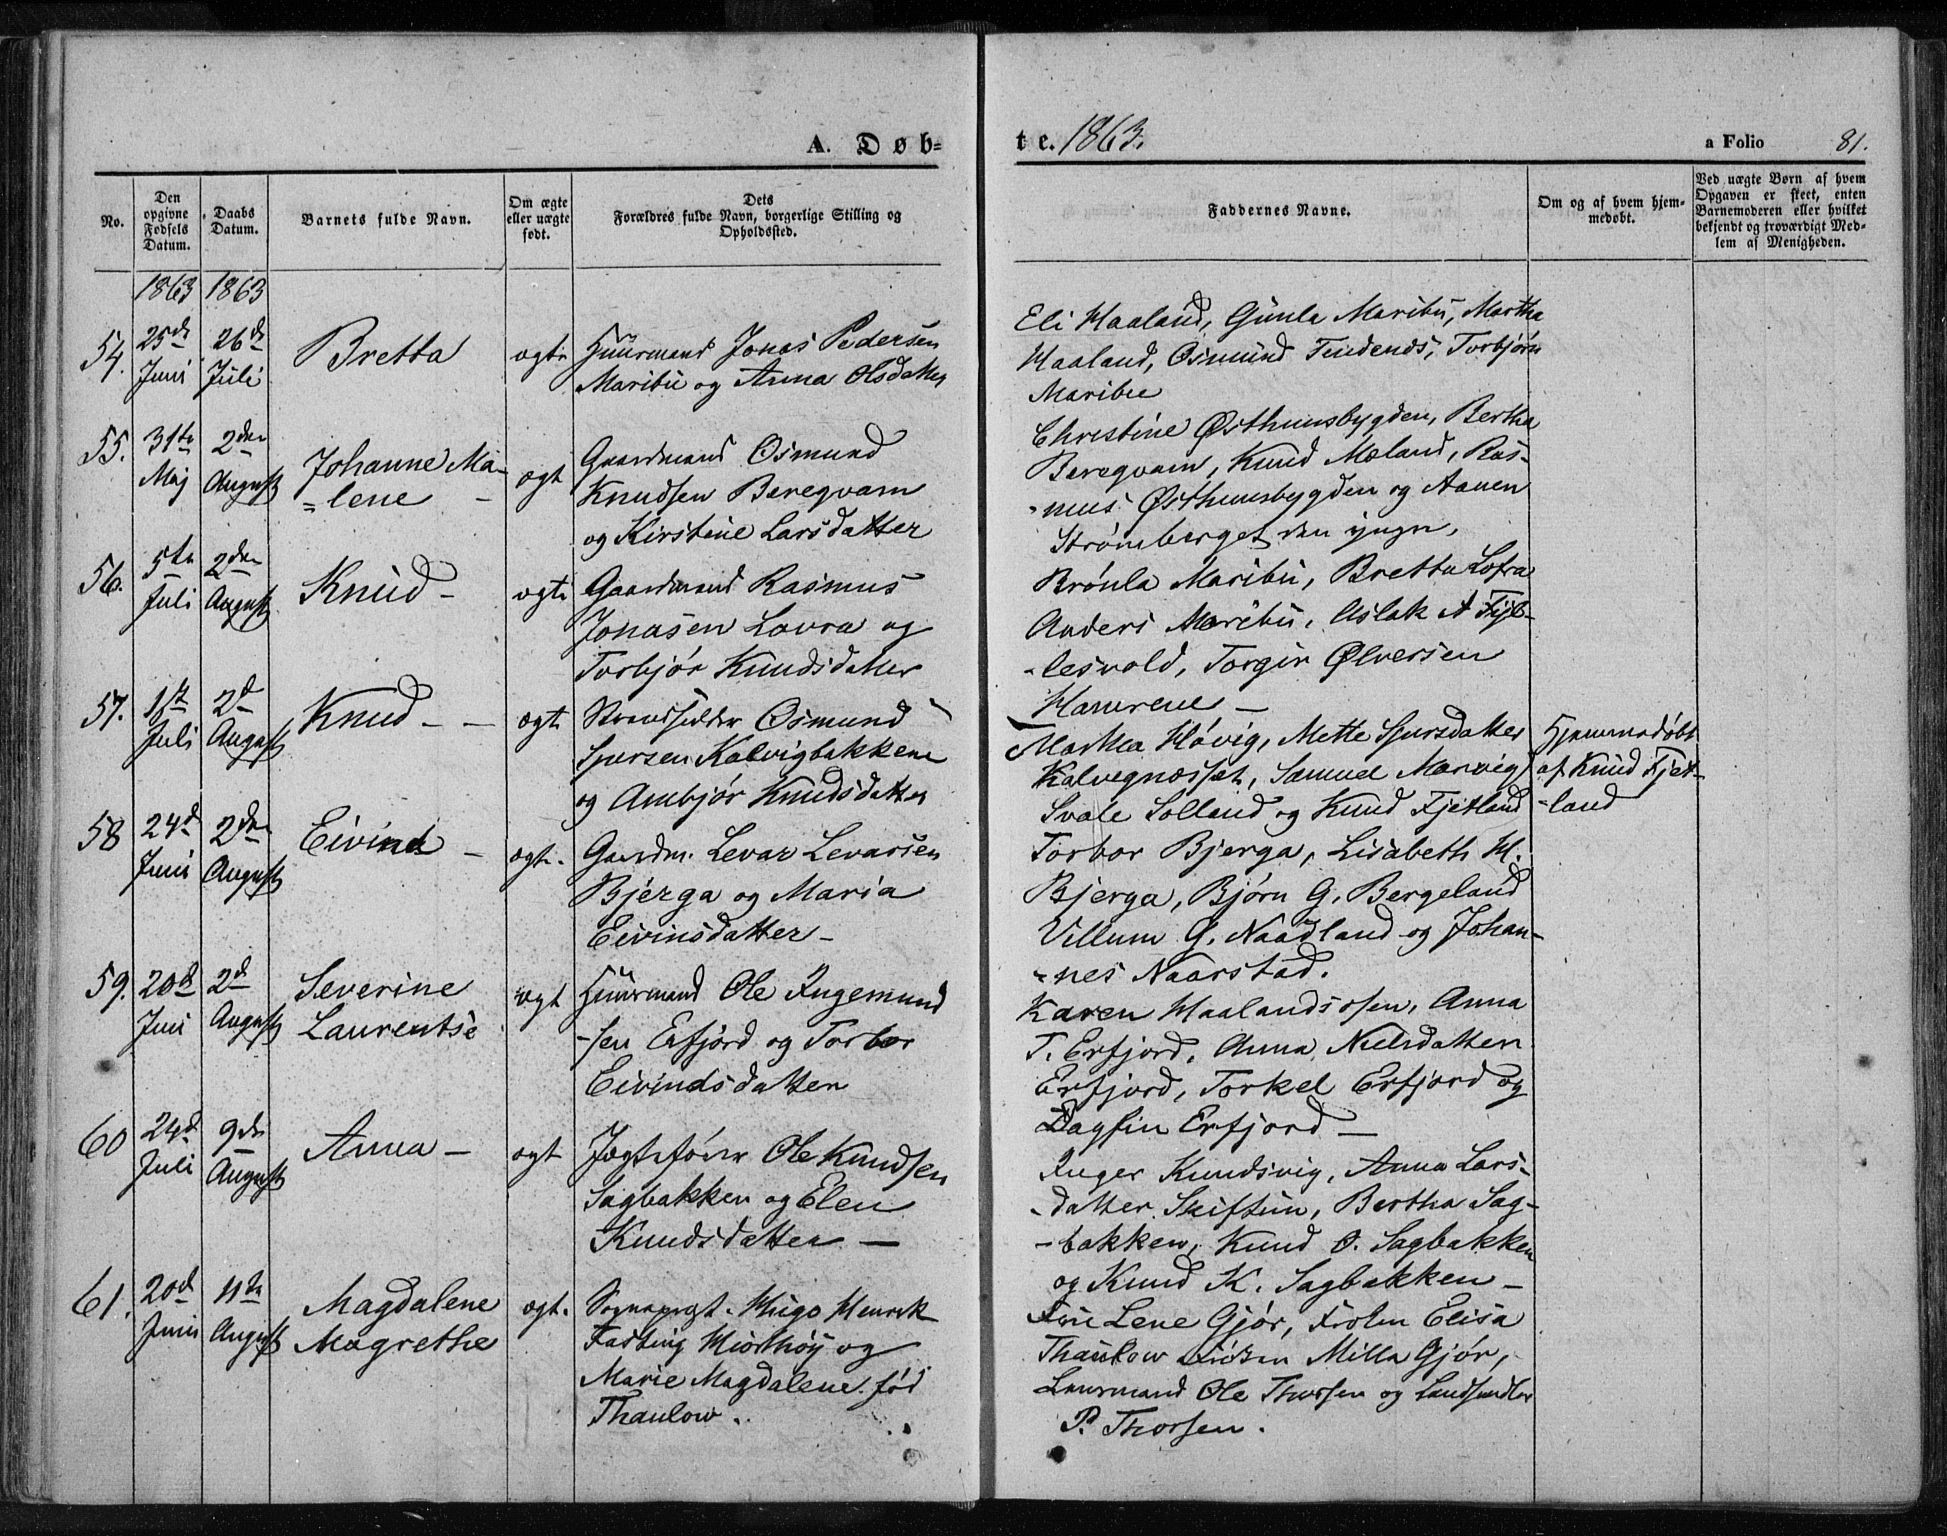 A. Døb-
te. 1863.
a Folio 81.
No.
Den opgivne Fødsels Datum.
Daabs Datum.
Barnets fulde Navn.
Om ægte eller uægte født.
Dets Forældres fulde Navn, borgerlige Stilling og Opholdssted.
Faddernes Navne.
Om og af hvem hjemmedøbt.
Ved uægte Børn af hvem Opgaven er skeet, enten Barnemoderen eller hvilket bekjendt og troværdigt Medlem af Menigheden.
1863 1863
54. 25de Juni
26de Juli
Bretta
ægte
Huusmand Jonas Pedersen
Maribu og Anna Olsdatter
Eli Haaland, Gunla Maribu, Martha
Haaland, Osmund Tendenes, Torbjørn
Maribu
55. 31te Maj
2den August
Johanne Ma-
=lene -
ægt
Gaardmand Osmund
Knudsen Beregvam
og Kirstine Larsdatter
Christine Østhunsbygden, Bertha
Beregvam, Knud Mæland, Ras-
-mus Østhunsbygden og Aanen
Strømberget den yngre,
56. 5te Juli
2den August
Knud -
ægte
Gaardmand Rasmus
Jonasen Lovra og
Torbjør Knudsdatter
Brønla Maribu, Bretta Lofra
Anders Maribu, Aslak A Fjel-
-lesvold, Torgir Ølversen
Hamrene -
57. 1ste Juli
2d August
Knud - -
ægt
Strandsidder Osmund
Sjursen Kalvigbakkene
og Ambjør Knudsdatter
Martha Høvig, Mette Sjursdatter
Kalvegnæsset, Samuel Marvig
Svale Solland og Knud Fjetland
Hjemmedøbt
af Knud Fjet-
-land
58 24d Juni
2den August
Eivind -
ægte.
Gaardm. Levar Levarsen
Bjerga og Maria
Eivinsdatter -
Torbor Bjerga, Lisabeth H.
Bjerga, Bjørn G. Bergeland
Villum G. Naadland og Johan-
-nes Naarstad.
59. 20d Juni
2d August
Severine
Laurentse
ægt
Huusmand Ole Ingemund
-sen Erfjord og Torbor
Eivindsdatter
Karen Haalandsosen, Anna
T. Erfjord, Anna Nielsdatter
Erfjord, Torkel Erfjord og
Dagfin Erfjord -
60 24d Juli
9de August
Anna -
ægt
Jægtefører Ole Knudsen
Sagbakken og Elen
Knudsdatter -
Inger Knudsvig, Anna Lars-
-datter Skiftun, Bertha Sag-
-bakken, Knud O. Sagbakken
og Knud K. Sagbakken -
61. 20d Juni
11te August
Magdalene
Magrethe
ægt.
Sognepræst. Hugo Henrik
Fasting Miorthøy og
Marie Magdalene fød
Thaulow.
Fru Lene Gjør, Frøken Elisa
Thaulow Frøken Milla Gjør,
Lensmand Ole Thorsen og Landhandler
P. Thorsen.